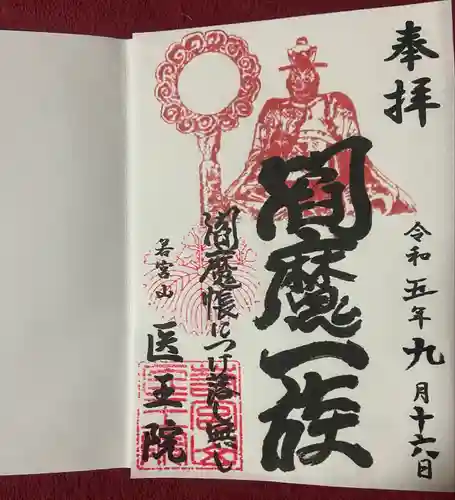 奉拝
令和五年九月十六日
閻魔一族
閻魔帳につけ落し無し
若宮山
医王院